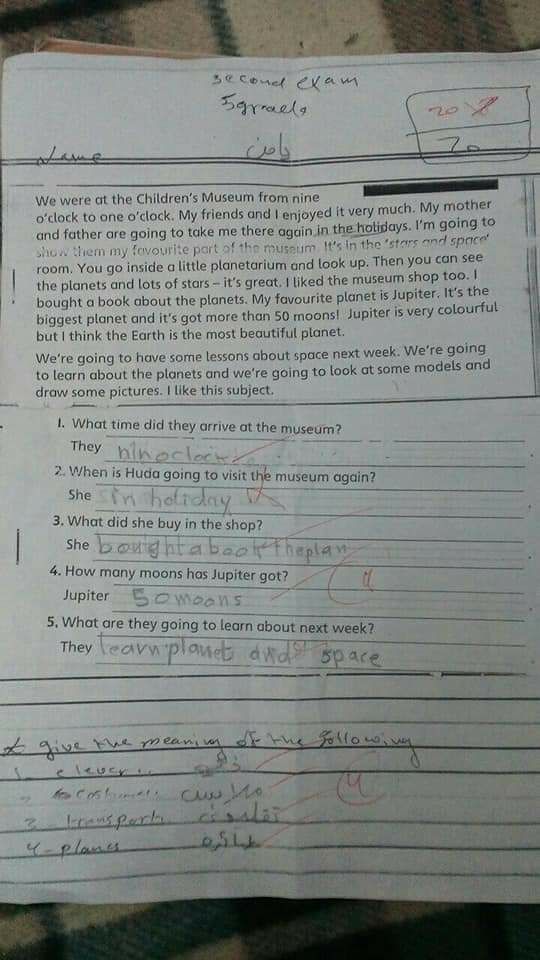 second exam
5 grade
20
20
Name
We were at the Children's Museum from nine
o'clock to one o'clock. My friends and I enjoyed it very much. My mother
and father are going to take me there again in the holidays. I'm going to
show them my favourite part of the museum. It's in the 'stars and space'
room. You go inside a little planetarium and look up. Then you can see
the planets and lots of stars – it's great. I liked the museum shop too. I
bought a book about the planets. My favourite planet is Jupiter. It's the
biggest planet and it's got more than 50 moons! Jupiter is very colourful
but I think the Earth is the most beautiful planet.
We're going to have some lessons about space next week. We're going
to learn about the planets and we're going to look at some models and
draw some pictures. I like this subject.
1. What time did they arrive at the museum?
They nin oclock
2. When is Huda going to visit the museum again?
She in holiday
3. What did she buy in the shop?
She bought a book the plan
4. How many moons has Jupiter got?
Jupiter 50 moons
5. What are they going to learn about next week?
They learn planet and space
give the meaning of the following
1. clever
2 costumes ملابس
3 transport
4-planes طائره